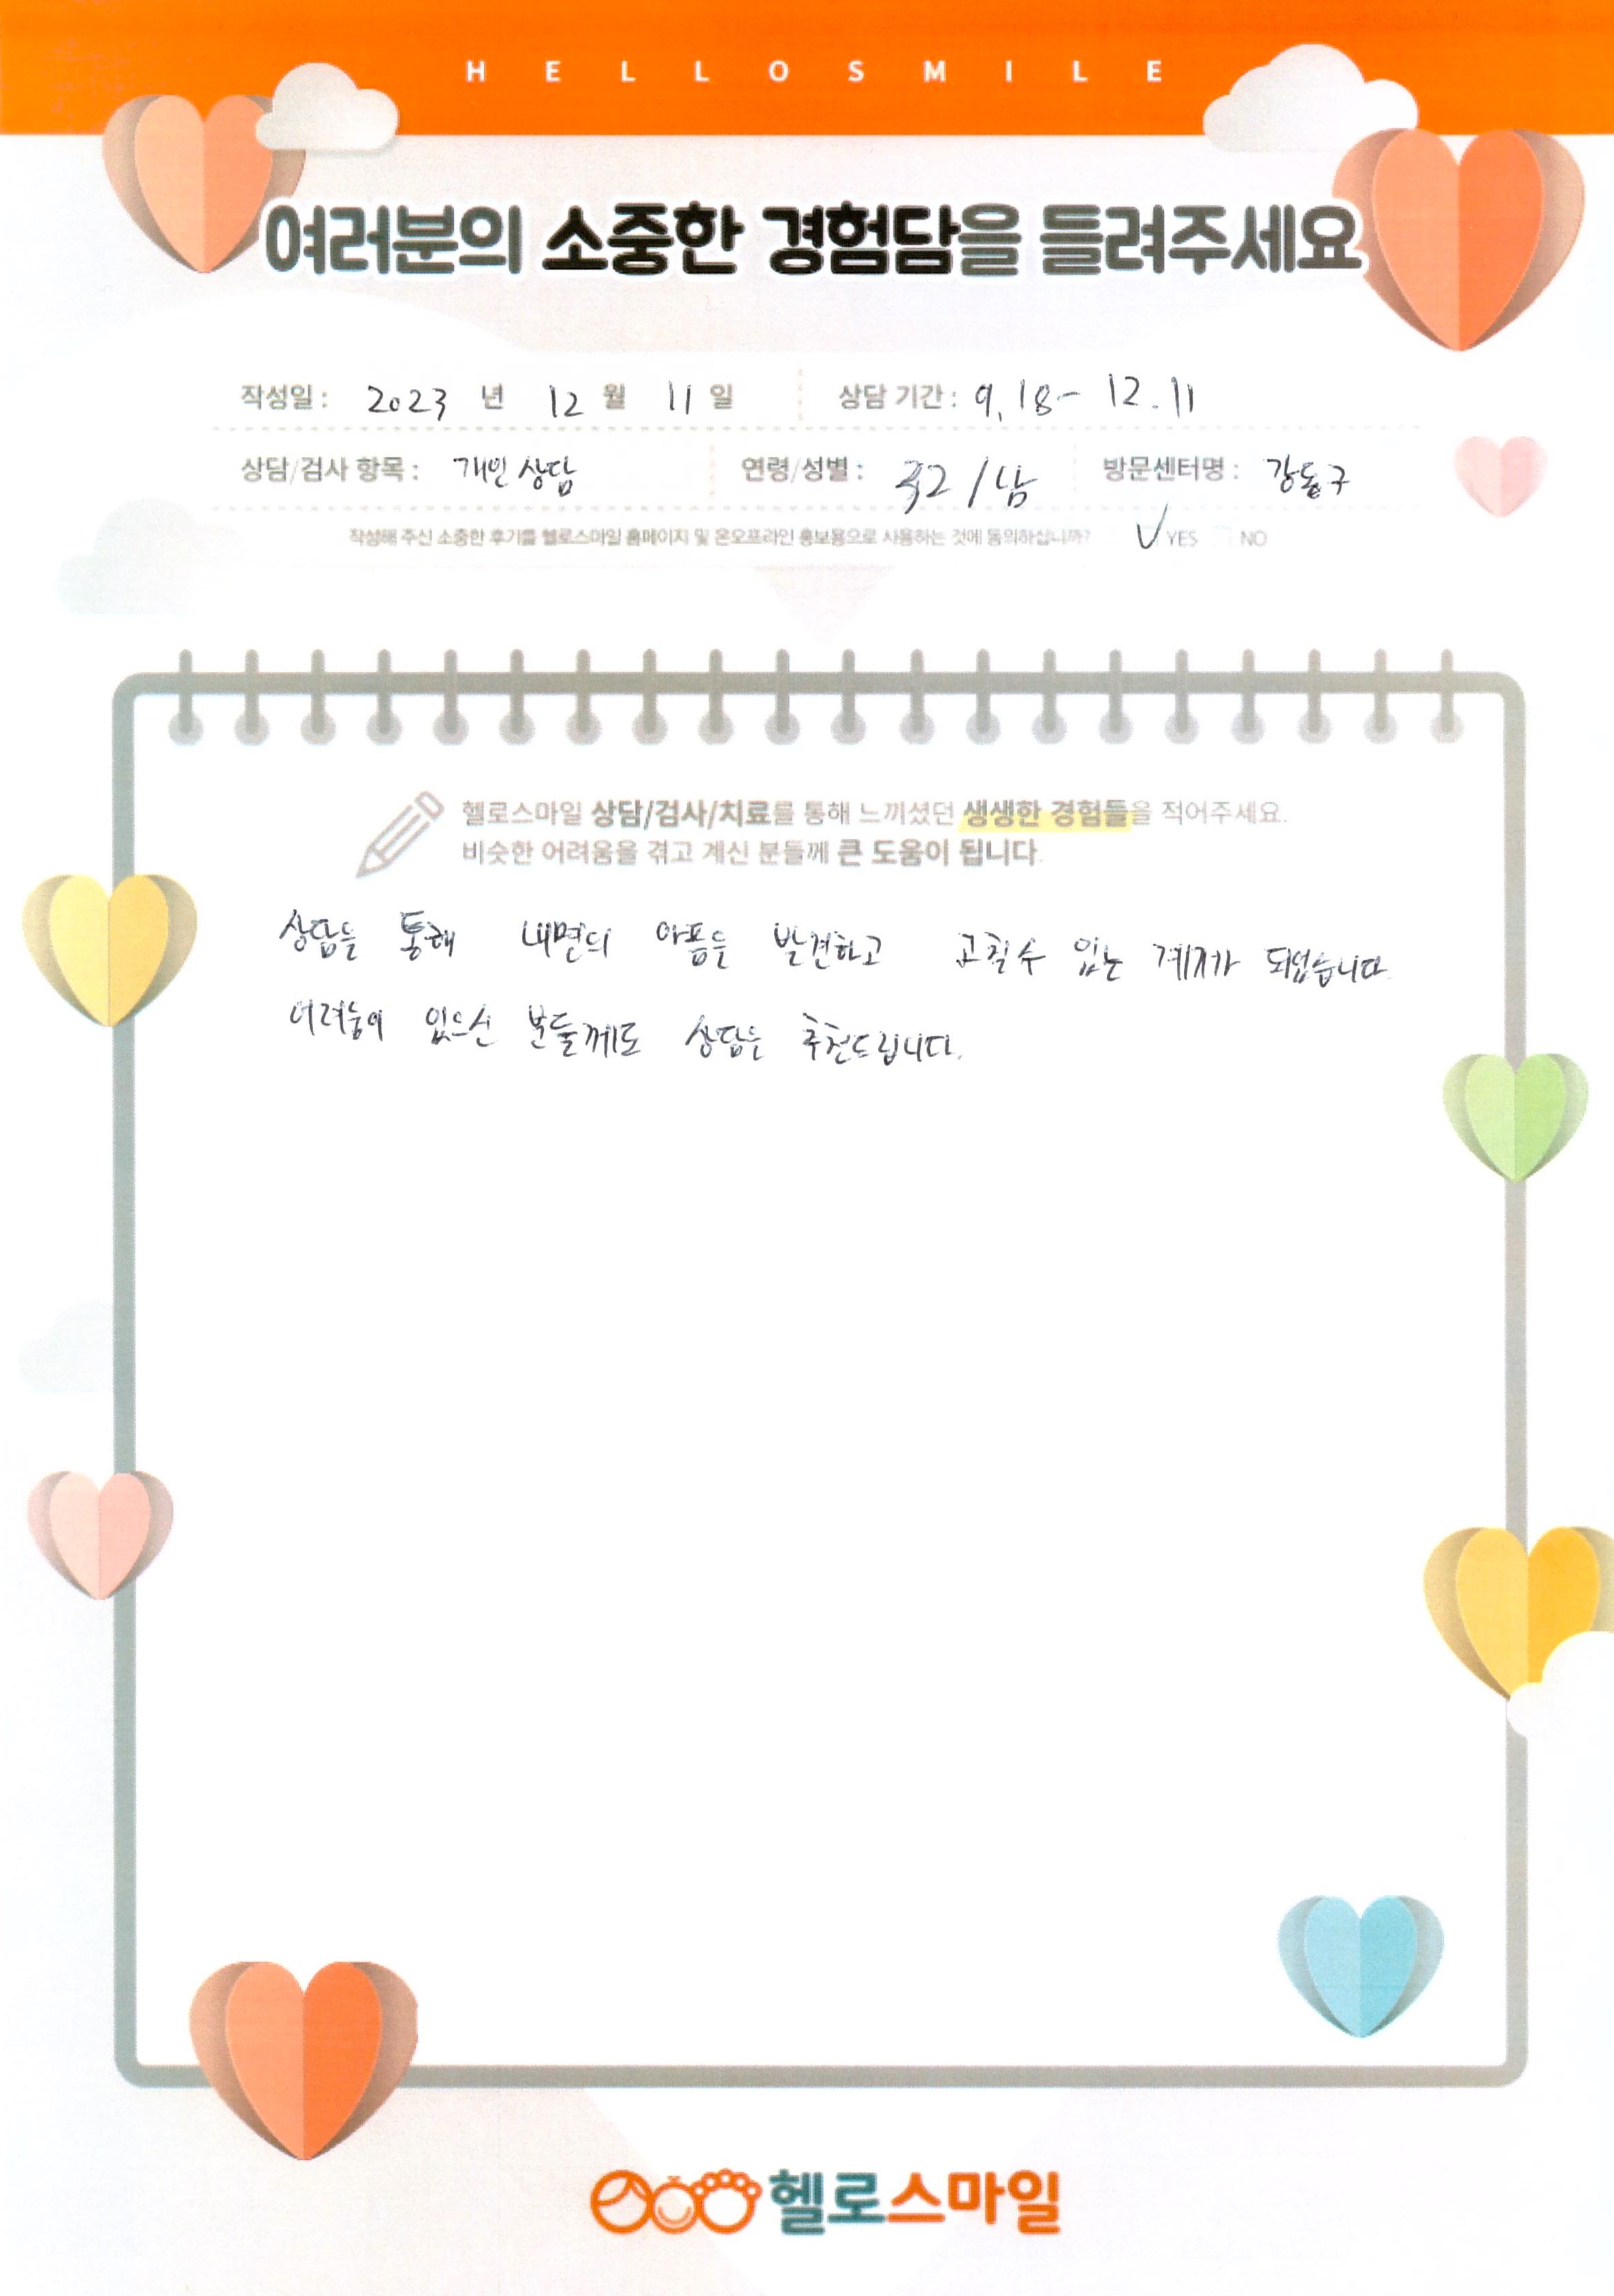 HELLOSMILE
여러분의 소중한 경험담을 들려주세요
작성일 : 2023 년 12 월 11 일 상담 기간 : 9. 18 - 12. 11
상담/검사 항목 : 개인 상담 연령/성별 : 32 /남 방문센터명 : 강동구
작성해 주신 소중한 후기를 헬로스마일 홈페이지 및 온오프라인 홍보용으로 사용하는 것에 동의하십니까? ✓ YES NO
헬로스마일 상담/검사/치료를 통해 느끼셨던 생생한 경험들을 적어주세요.
비슷한 어려움을 겪고 계신 분들께 큰 도움이 됩니다.
상담을 통해 내면의 아픔을 발견하고 고칠수 있는 계기가 되었습니다
어려움이 있으신 분들께도 상담을 추천드립니다.
헬로스마일